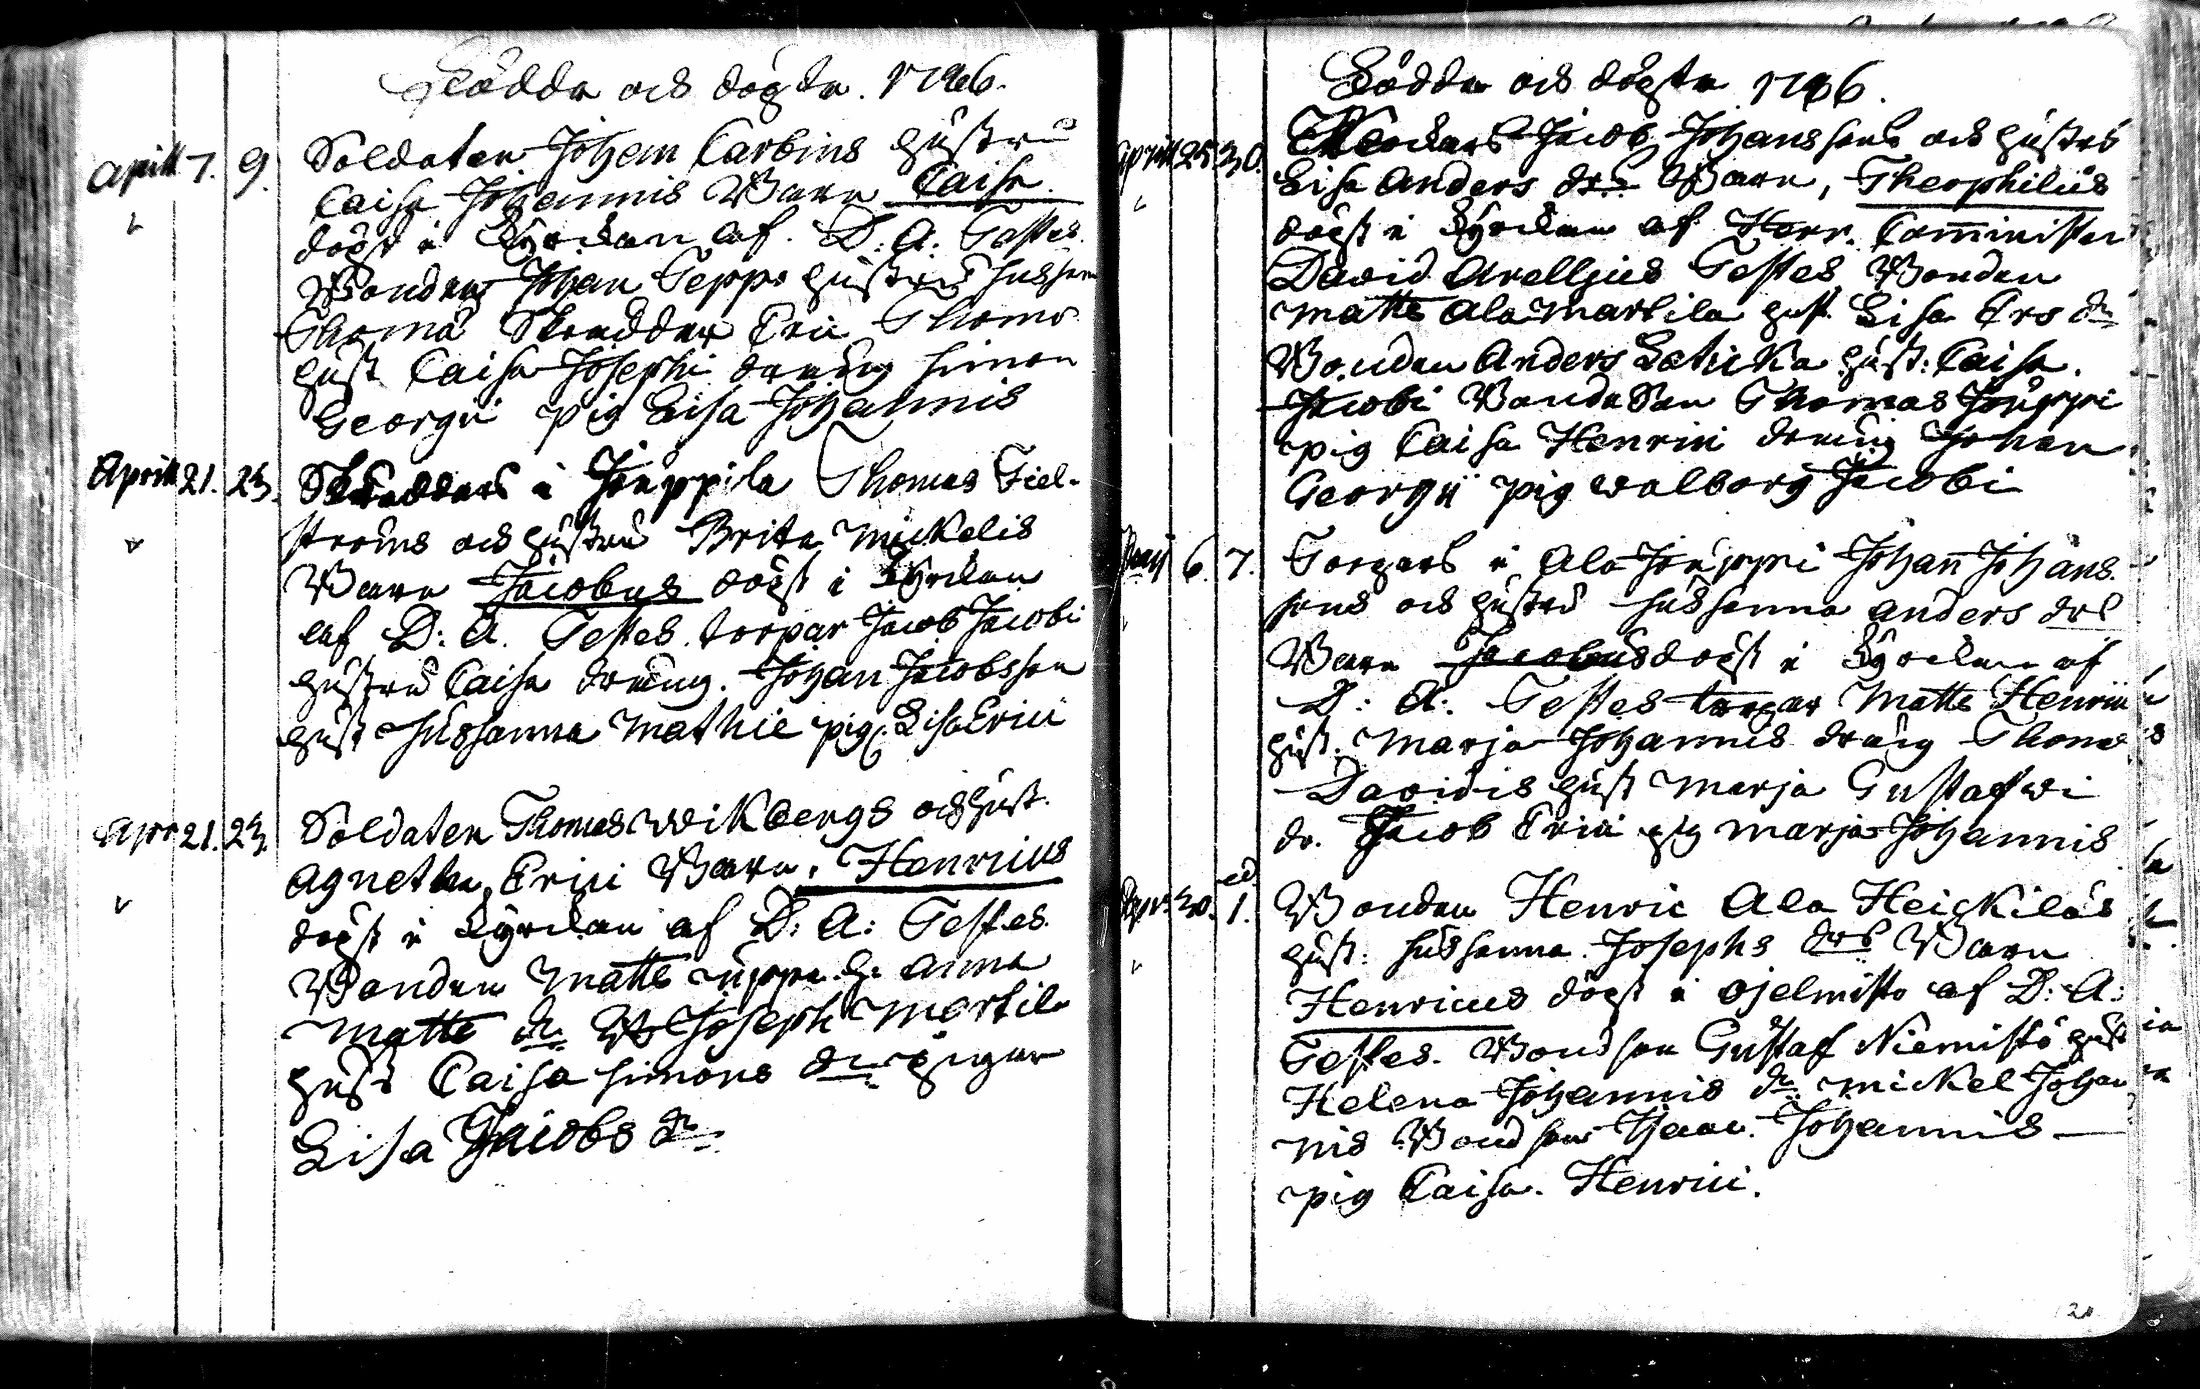 Födde och döpte. 1796.
Aprill 7. 9. Soldaten Johan Carbins hustru
Caisa Johannis Barn Caisa
döpt i Kyrckan af. D: A: Testes.
Bonden Johan Seppe hustru Sussan
Thomæ Skredder Eric Thoms
hust Caisa Josephi dreng Simon
Georgii pig Lisa Johannis
Aprill 21. 23. Skredders i Jouppila Thomas Fiel-
ströms och hustru Brita Mickelis
Barn Jacobus döpt i Kyrckan
af D: A. Testes. torpar Jacob Jacobi
hustru Caisa dreng. Johan Jacobsson
hust Sussanna Mathie pig. Lisa Erici
Apr. 21. 23. Soldaten Thomas Weikbergs och hust.
Agnetha Erici Barn. Henricus
döpt i Kyrckan af D: A: Testes.
Bonden Matts h. Anna
Matts dr B Joseph Martila
hust Caisa Simons dr pigan
Lisa Jacobs dr
Födde och döpte 1796.
Aprill 25. 30. Jacob Johanssons och hustrus
Lisa Anders drs Barn, Theophilus
döpt i Kyrckan af Herr. Comminister
David Arellius Testes Bonden
Matts Ala Martila hust. Lisa Ers dr
Bonden Anders Laticka hust: Caisa.
Jacobi Bonda Son Thomas Jouppi
pig Caisa Henrici dreng Johan
Georgii pig Walborg Jacobi
Maij 6. 7. Torpars i Ala Jouppi Johan Johans
sons och hustru Sussanna Anders drs
Barn Jacobus döpt i Kyrckan af
D: A: Testes torpar Matts Henrici
hust. Marja Johannis dreng Thomas
Davidis hust Marja Gustafvi
dr. Jacob Erici pig Marja Johannis
Apr. 30. 1. Bonden Henric Ala Heickiläs
hust: Sussanna Josephs drs Barn
Henricus döpt i Ojelmisto af D: A:
Testes. Bondson Gustaf Niemistö hust
Helena Johannis dr Mickel Johan
nis Bondson Isaac. Johannis
pig Caisa. Henrici.